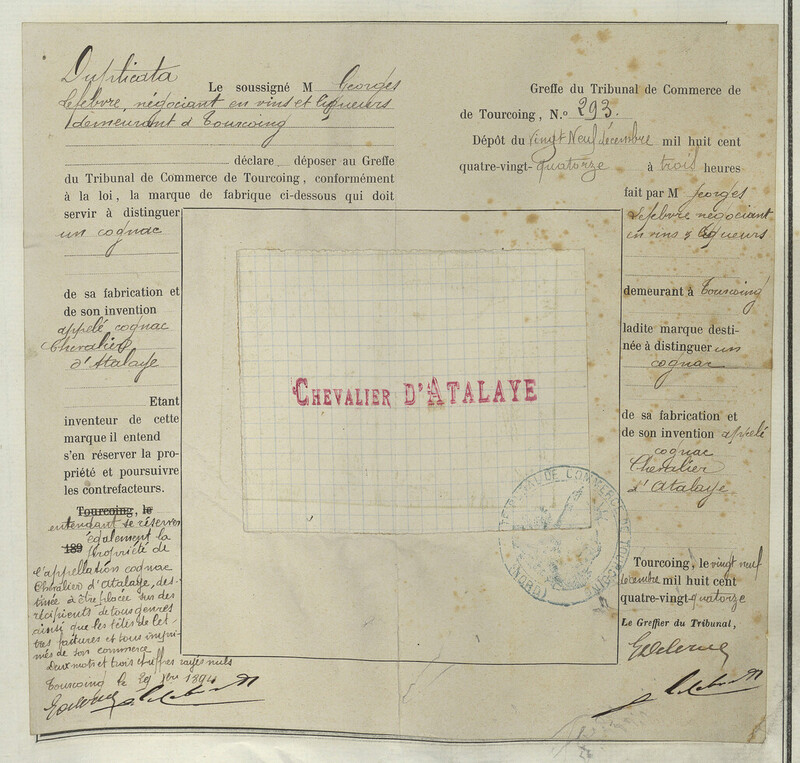 Duplicata
Le soussigné M Georges
Lefebvre, négociant en vins et liqueurs
demeurant à Tourcoing
déclare déposer au Greffe
du Tribunal de Commerce de Tourcoing, conformément
à la loi, la marque de fabrique ci-dessous qui doit
servir à distinguer
un cognac
de sa fabrication et
de son invention
appelé cognac
Chevalier
d'Atalaye
Etant
inventeur de cette
marque il entend
s'en réserver la pro-
priété et poursuivre
les contrefacteurs.
Tourcoing, le
entendant se réserver
également la
189 propriété de
l'appellation cognac
Chevalier d'Atalaye, des-
tinée à être placée sur des
récipients de tous genres
ainsi que les têtes de let-
tres factures et tous impri-
més de son commerce
Deux mots et trois chiffres rayés nuls
Tourcoing le 29 Xbre 1894
CHEVALIER D'ATALAYE
TRIBUNAL DE COMMERCE DE TOURCOING
(NORD)
Greffe du Tribunal de Commerce de
de Tourcoing, N.º 293.
Dépôt du vingt Neuf décembre mil huit cent
quatre-vingt-quatorze à trois heures
fait par M Georges
Lefebvre négociant
en vins & liqueurs
demeurant à Tourcoing
ladite marque desti-
née à distinguer un
cognac
de sa fabrication et
de son invention appelé
cognac
Chevalier
d'Atalaye
Tourcoing, le vingt neuf
décembre mil huit cent
quatre-vingt-quatorze
Le Greffier du Tribunal,